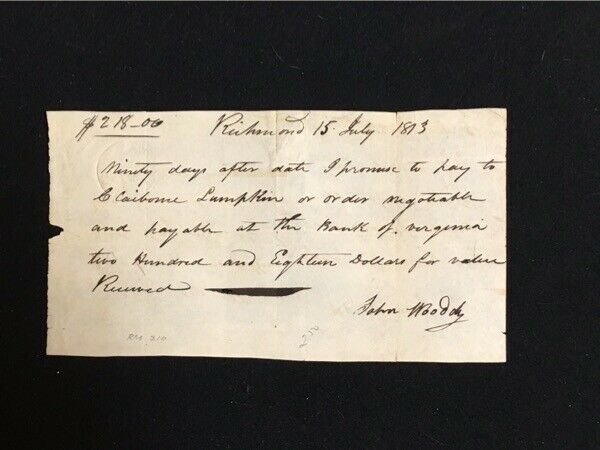 $218_00 Richmond 15 July 1813
Ninety days after date I promise to pay to
Claiborne Lumpkin or order negotiable
and payable at the Bank of virginia
two Hundred and Eighteen Dollars for value
Received
John Wooddy
RM 210
250